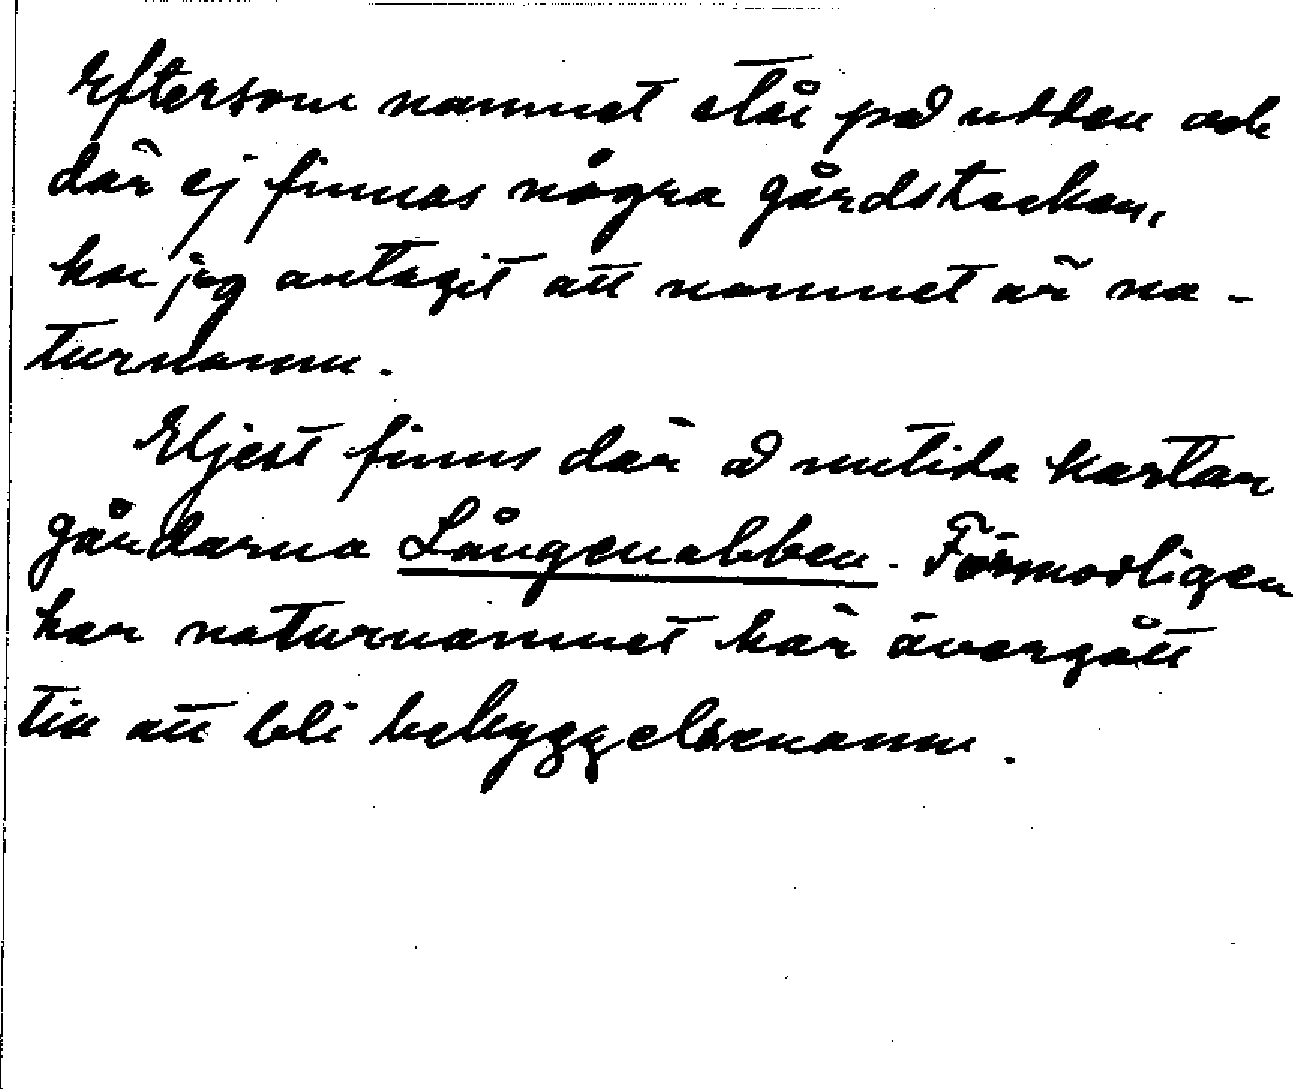 Eftersom namnet står på udden och
där ej finnas några gårdstecken,
har jag antagit att namnet är na-
turnamn.
Eljest finns där å nutida kartan
gårdarna Långenabben. Förmodligen
har naturnamnet här övergått
till att bli bebyggelsenamn.